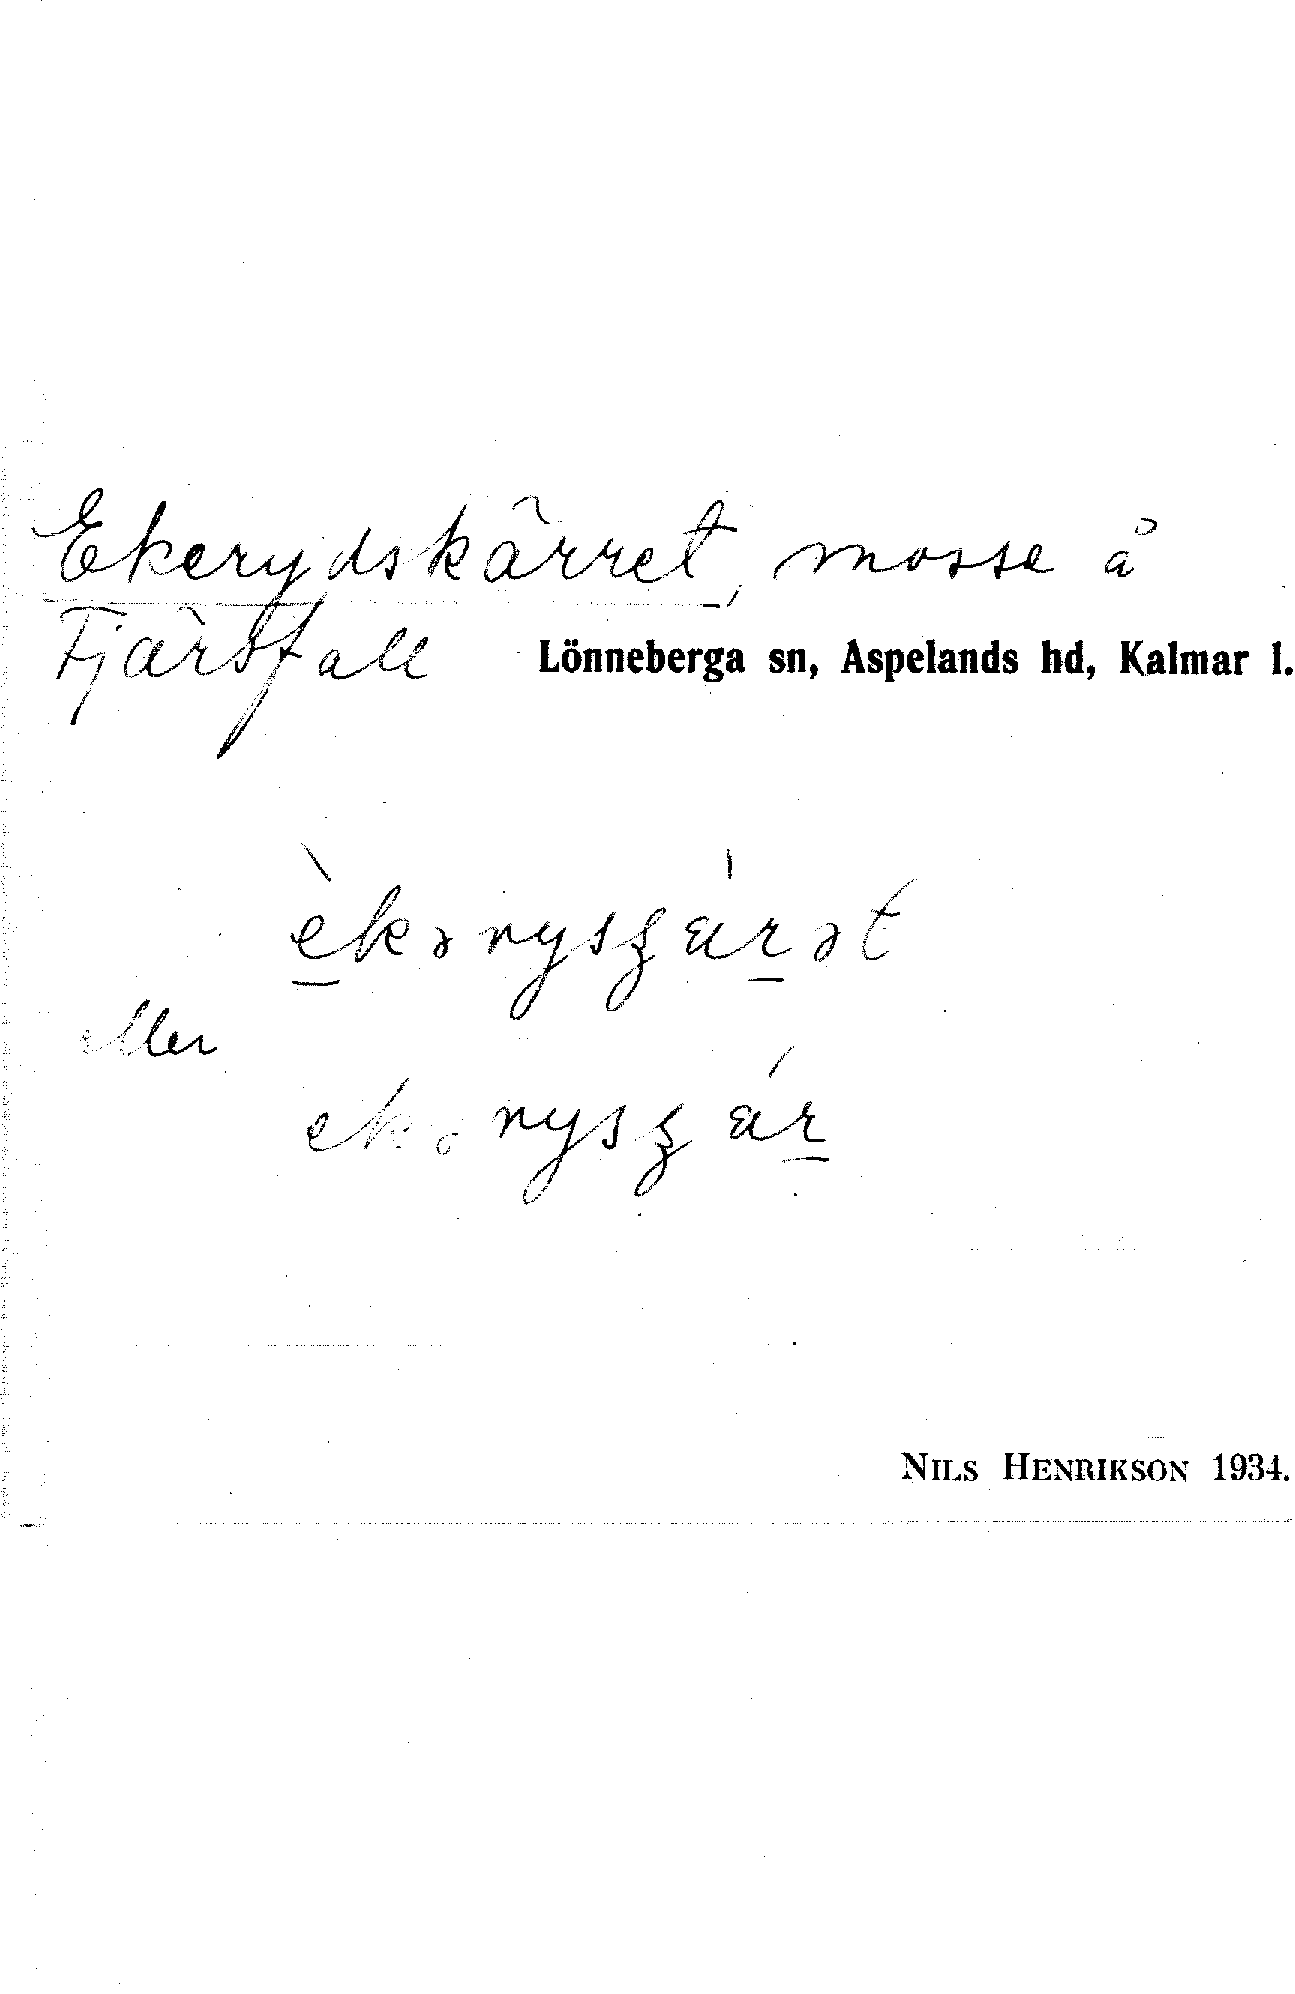 Ekerydskärret, mosse å
Fjärsfall Lönneberga sn, Aspelands hd, Kalmar l.
èkərysʒàrət
eller
ekərysʒár
NILS HENRIKSON 1934.